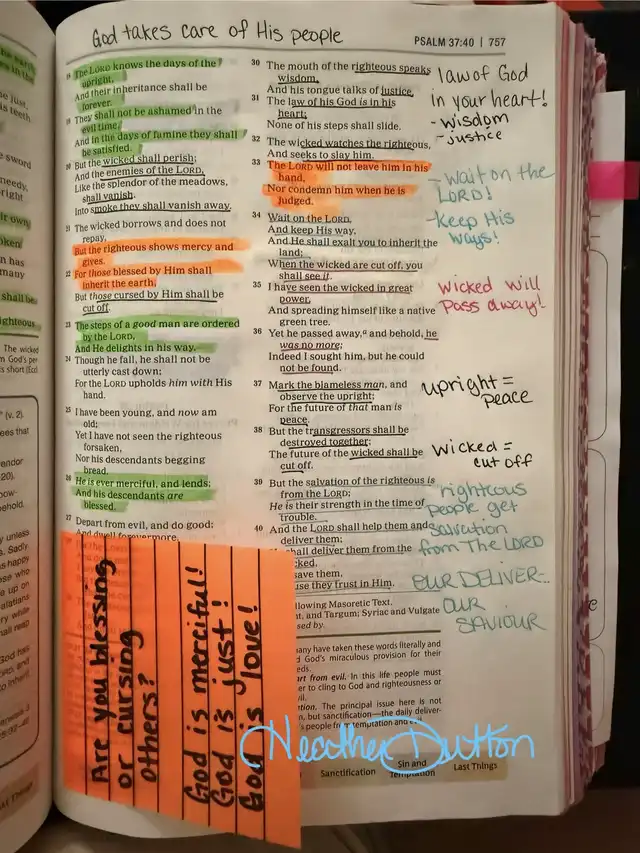 God takes care of His people
PSALM 37:40 | 757
18 The LORD knows the days of the
upright,
And their inheritance shall be
forever.
19 They shall not be ashamed in the
evil time,
And in the days of famine they shall
be satisfied.
20 But the wicked shall perish;
And the enemies of the LORD,
Like the splendor of the meadows,
shall vanish.
Into smoke they shall vanish away.
21 The wicked borrows and does not
repay,
But the righteous shows mercy and
gives.
22 For those blessed by Him shall
inherit the earth,
But those cursed by Him shall be
cut off.
23 The steps of a good man are ordered
by the LORD,
And He delights in his way.
24 Though he fall, he shall not be
utterly cast down;
For the LORD upholds him with His
hand.
25 I have been young, and now am
old;
Yet I have not seen the righteous
forsaken,
Nor his descendants begging
bread.
26 He is ever merciful, and lends;
And his descendants are
blessed.
27 Depart from evil, and do good;
And dwell forevermore.
30 The mouth of the righteous speaks
wisdom,
And his tongue talks of justice.
31 The law of his God is in his
heart;
None of his steps shall slide.
32 The wicked watches the righteous,
And seeks to slay him.
33 The LORD will not leave him in his
hand,
Nor condemn him when he is
judged.
34 Wait on the LORD,
And keep His way,
And He shall exalt you to inherit the
land;
When the wicked are cut off, you
shall see it.
35 I have seen the wicked in great
power,
And spreading himself like a native
green tree.
36 Yet he passed away,a and behold, he
was no more;
Indeed I sought him, but he could
not be found.
37 Mark the blameless man, and
observe the upright;
For the future of that man is
peace.
38 But the transgressors shall be
destroyed together;
The future of the wicked shall be
cut off.
39 But the salvation of the righteous is
from the LORD;
He is their strength in the time of
trouble.
40 And the LORD shall help them and
deliver them;
shall deliver them from the
cked,
save them,
use they trust in Him.
llowing Masoretic Text,
nt, and Targum; Syriac and Vulgate
sed by.
any have taken these words literally and
God's miraculous provision for their
eds.
art from evil. In this life people must
er to cling to God and righteousness or
il.
tion. The principal issue here is not
n, but sanctification—the daily deliver-
s people from temptation and evil
Sanctification
Sin and
Temptation
Last Things
law of God
in your heart!
- wisdom
- justice
- wait on the
LORD!
- keep His
ways!
wicked will
pass away!
upright =
peace
wicked =
cut off
righteous
people get
salvation
from The LORD
OUR DELIVER-
OUR
SAVIOUR
Are you blessing
or cursing
others?
God is merciful!
God is just!
God is love!
Heather Dutton